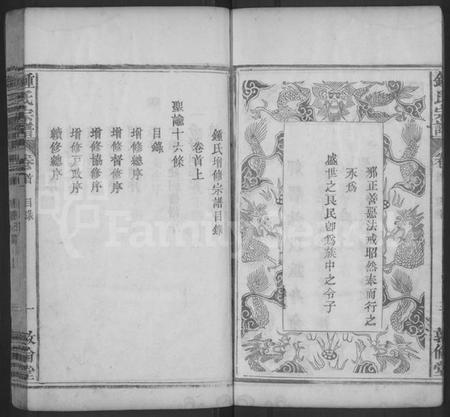 鍾氏宗譜
邪正善惡法戒昭然奉而行之
永爲
盛世之良民卽爲族中之令子
鍾氏增修宗譜目錄
卷首上
聖諭十六條
目錄
增修總序
增修督序
增修協序
續修總序
鍾氏宗譜
卷首
目錄
一
敦倫堂
FamilySearch